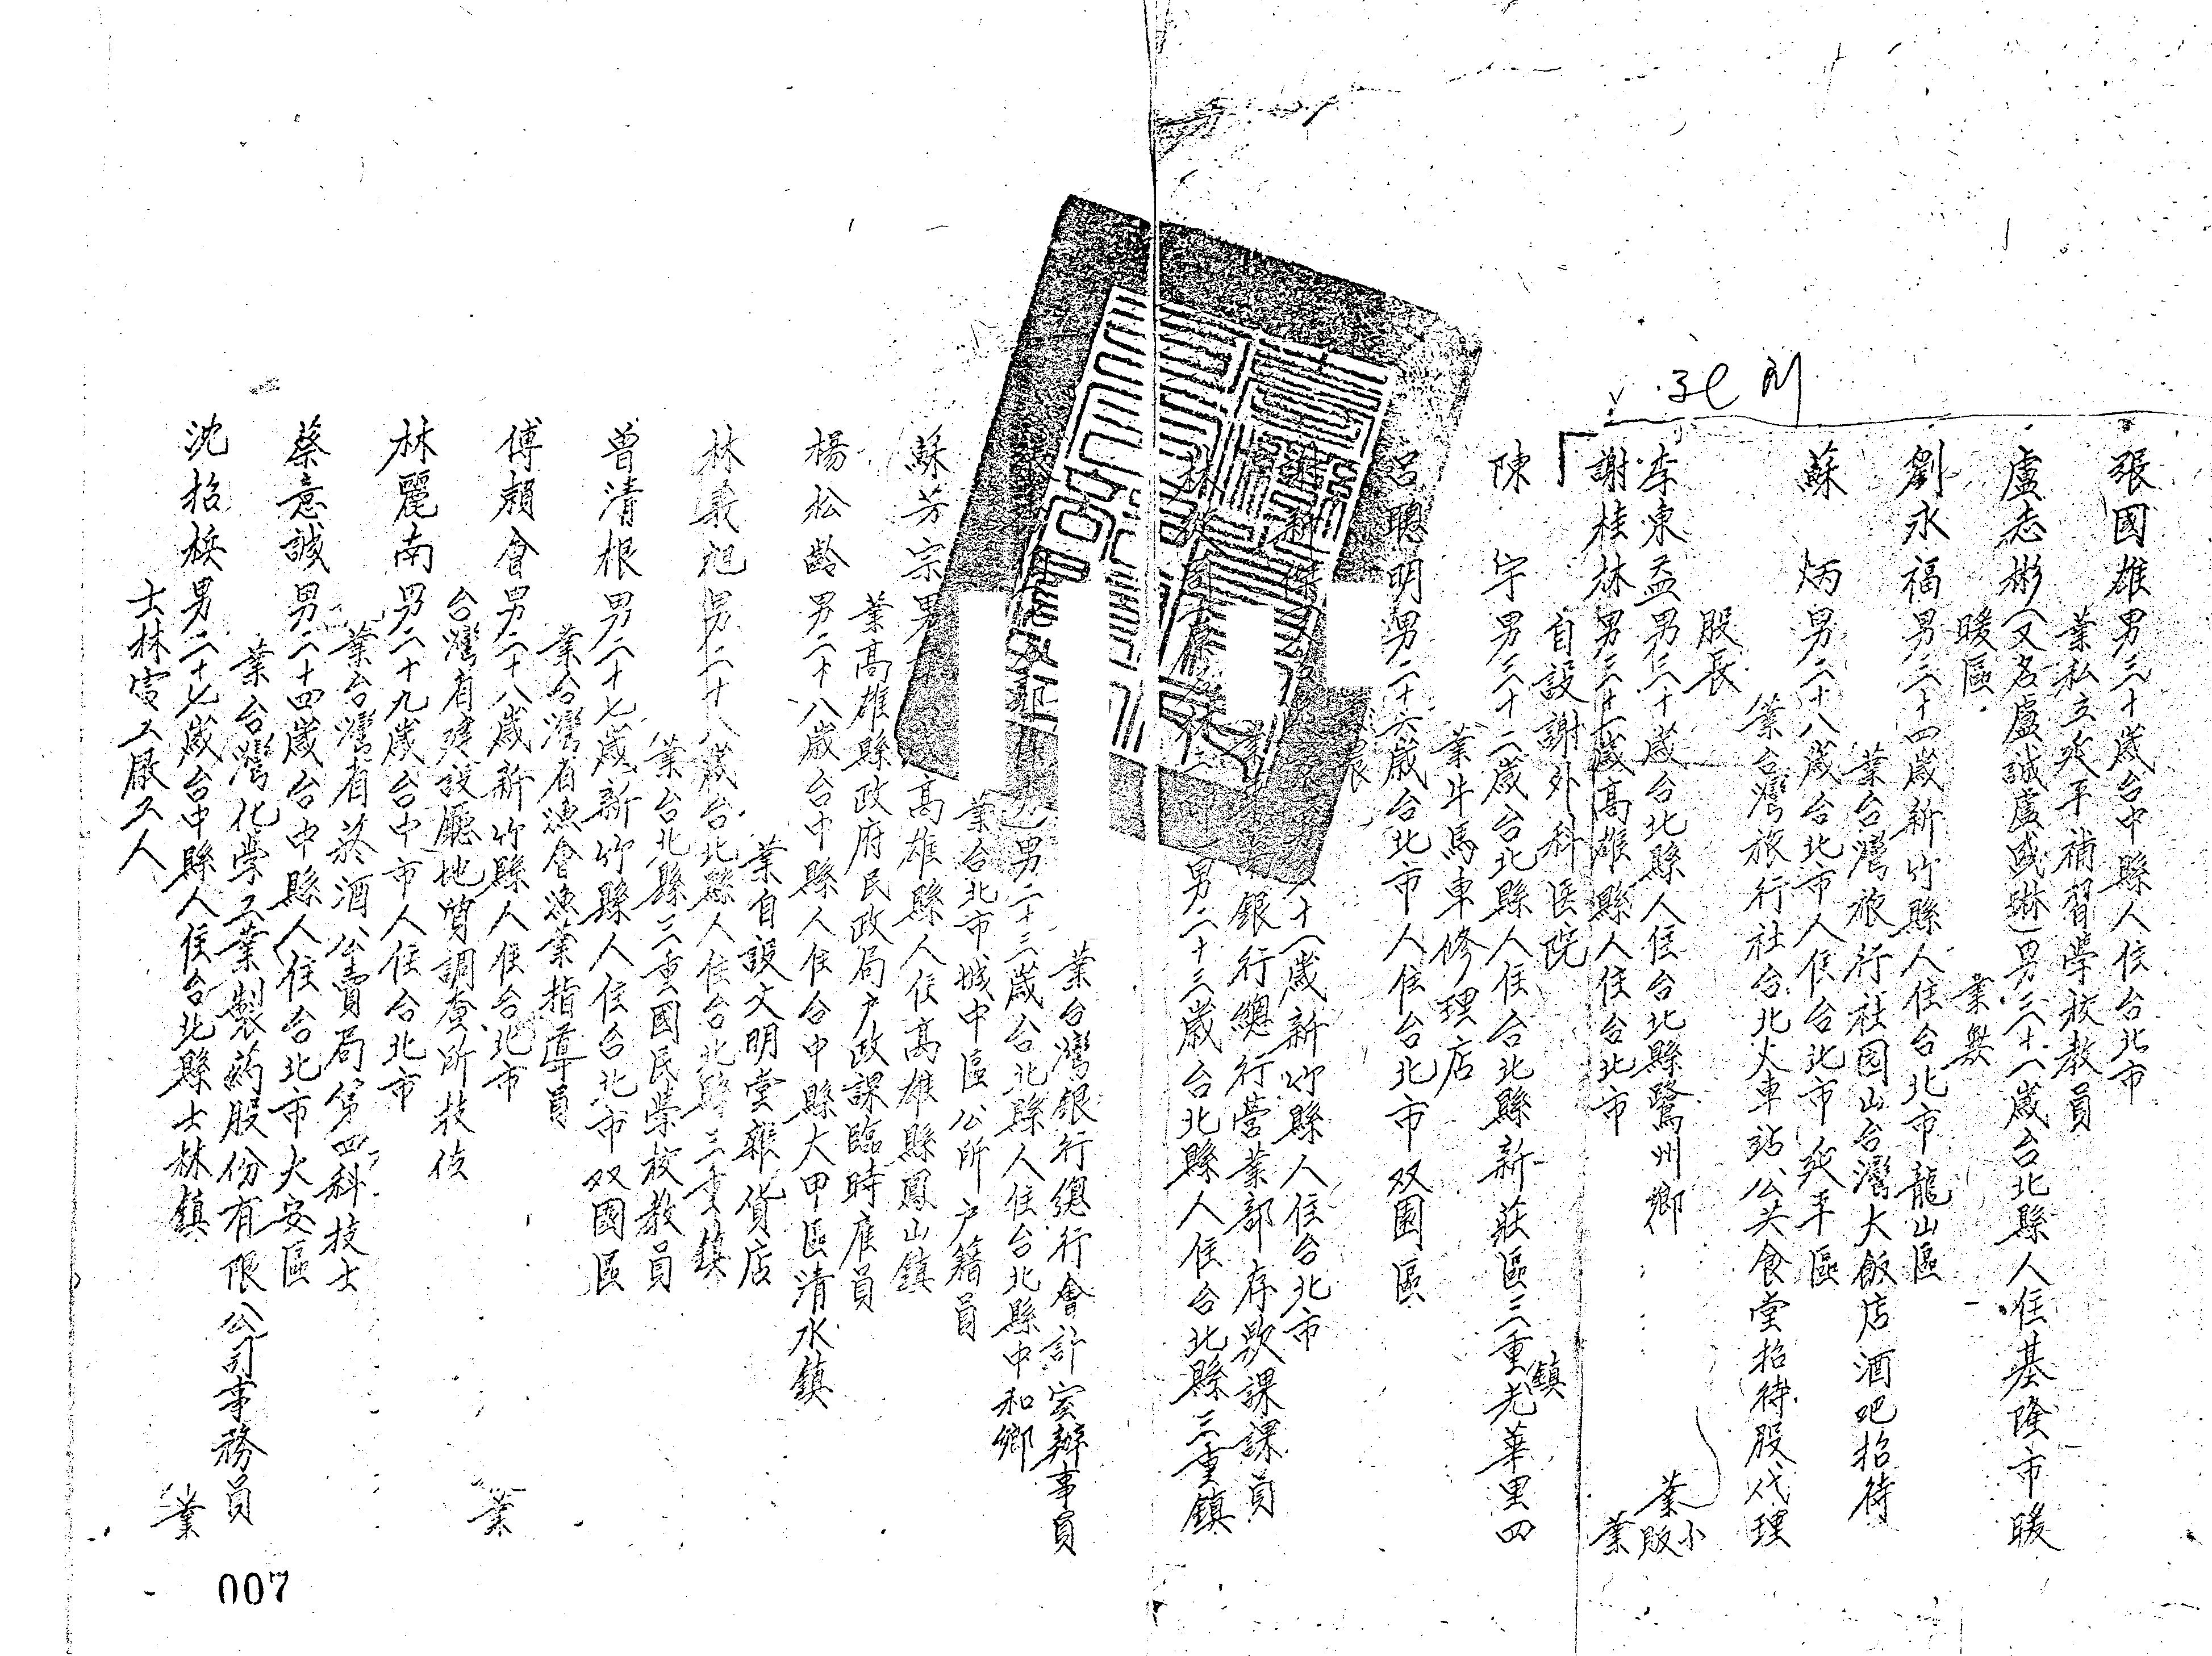 張國雄男三十歲台中縣人住台北市
業私立延平補習學校教員
盧志彬(又名盧誠盧盛)男三十一歲台北縣人住基隆市暖
暖區 業無
劉永福男三十四歲新竹縣人住台北市龍山區
業台灣旅行社園山台灣大飯店酒吧招待
蘇 炳男二十八歲台北市人住台北市延平區
業台灣旅行社台北火車站公共食堂招待股代理
股長
李東益男三十歲台北縣人住台北縣鷺州鄉
業小販
謝桂林男三十七歲高雄縣人住台北市 業
自設謝外科医院
陳 宇男三十二歲台北縣人住台北縣新莊區三重鎮光華里四
業牛馬車修理店
呂聰明男二十六歲台北市人住台北市双園區
農
十一歲新竹縣人住台北市
業 南銀行總行營業部存款課課員
林從 男二十三歲台北縣人住台北縣三重鎮
業台灣銀行總行會計室辦事員
男二十三歲台北縣人住台北縣中和鄉
業台北市城中區公所户籍員
蘇芳宗男 高雄縣人住高雄縣鳳山鎮
業高雄縣政府民政局户政課臨時雇員
楊松齡男二十八歲台中縣人住台中縣大甲區清水鎮
業自設文明堂雜貨店
林義旭男二十八歲台北縣人住台北縣三重鎮
業台北縣三重國民學校教員
曾清根男二十七歲新竹縣人住台北市双園區
業台灣省漁會漁業指導員
傅賴會男二十八歲新竹縣人住台北市 業
台灣省建設廳地質調查所技佐
林麗南男二十九歲台中市人住台北市
業台灣省菸酒公賣局第四科技士
蔡意誠男二十四歲台中縣人住台北市大安區
業台灣化學工業製药股份有限公司事務員
沈招 男二十七歲台中縣人住台北縣士林鎮 業
士林 工廠工人
007